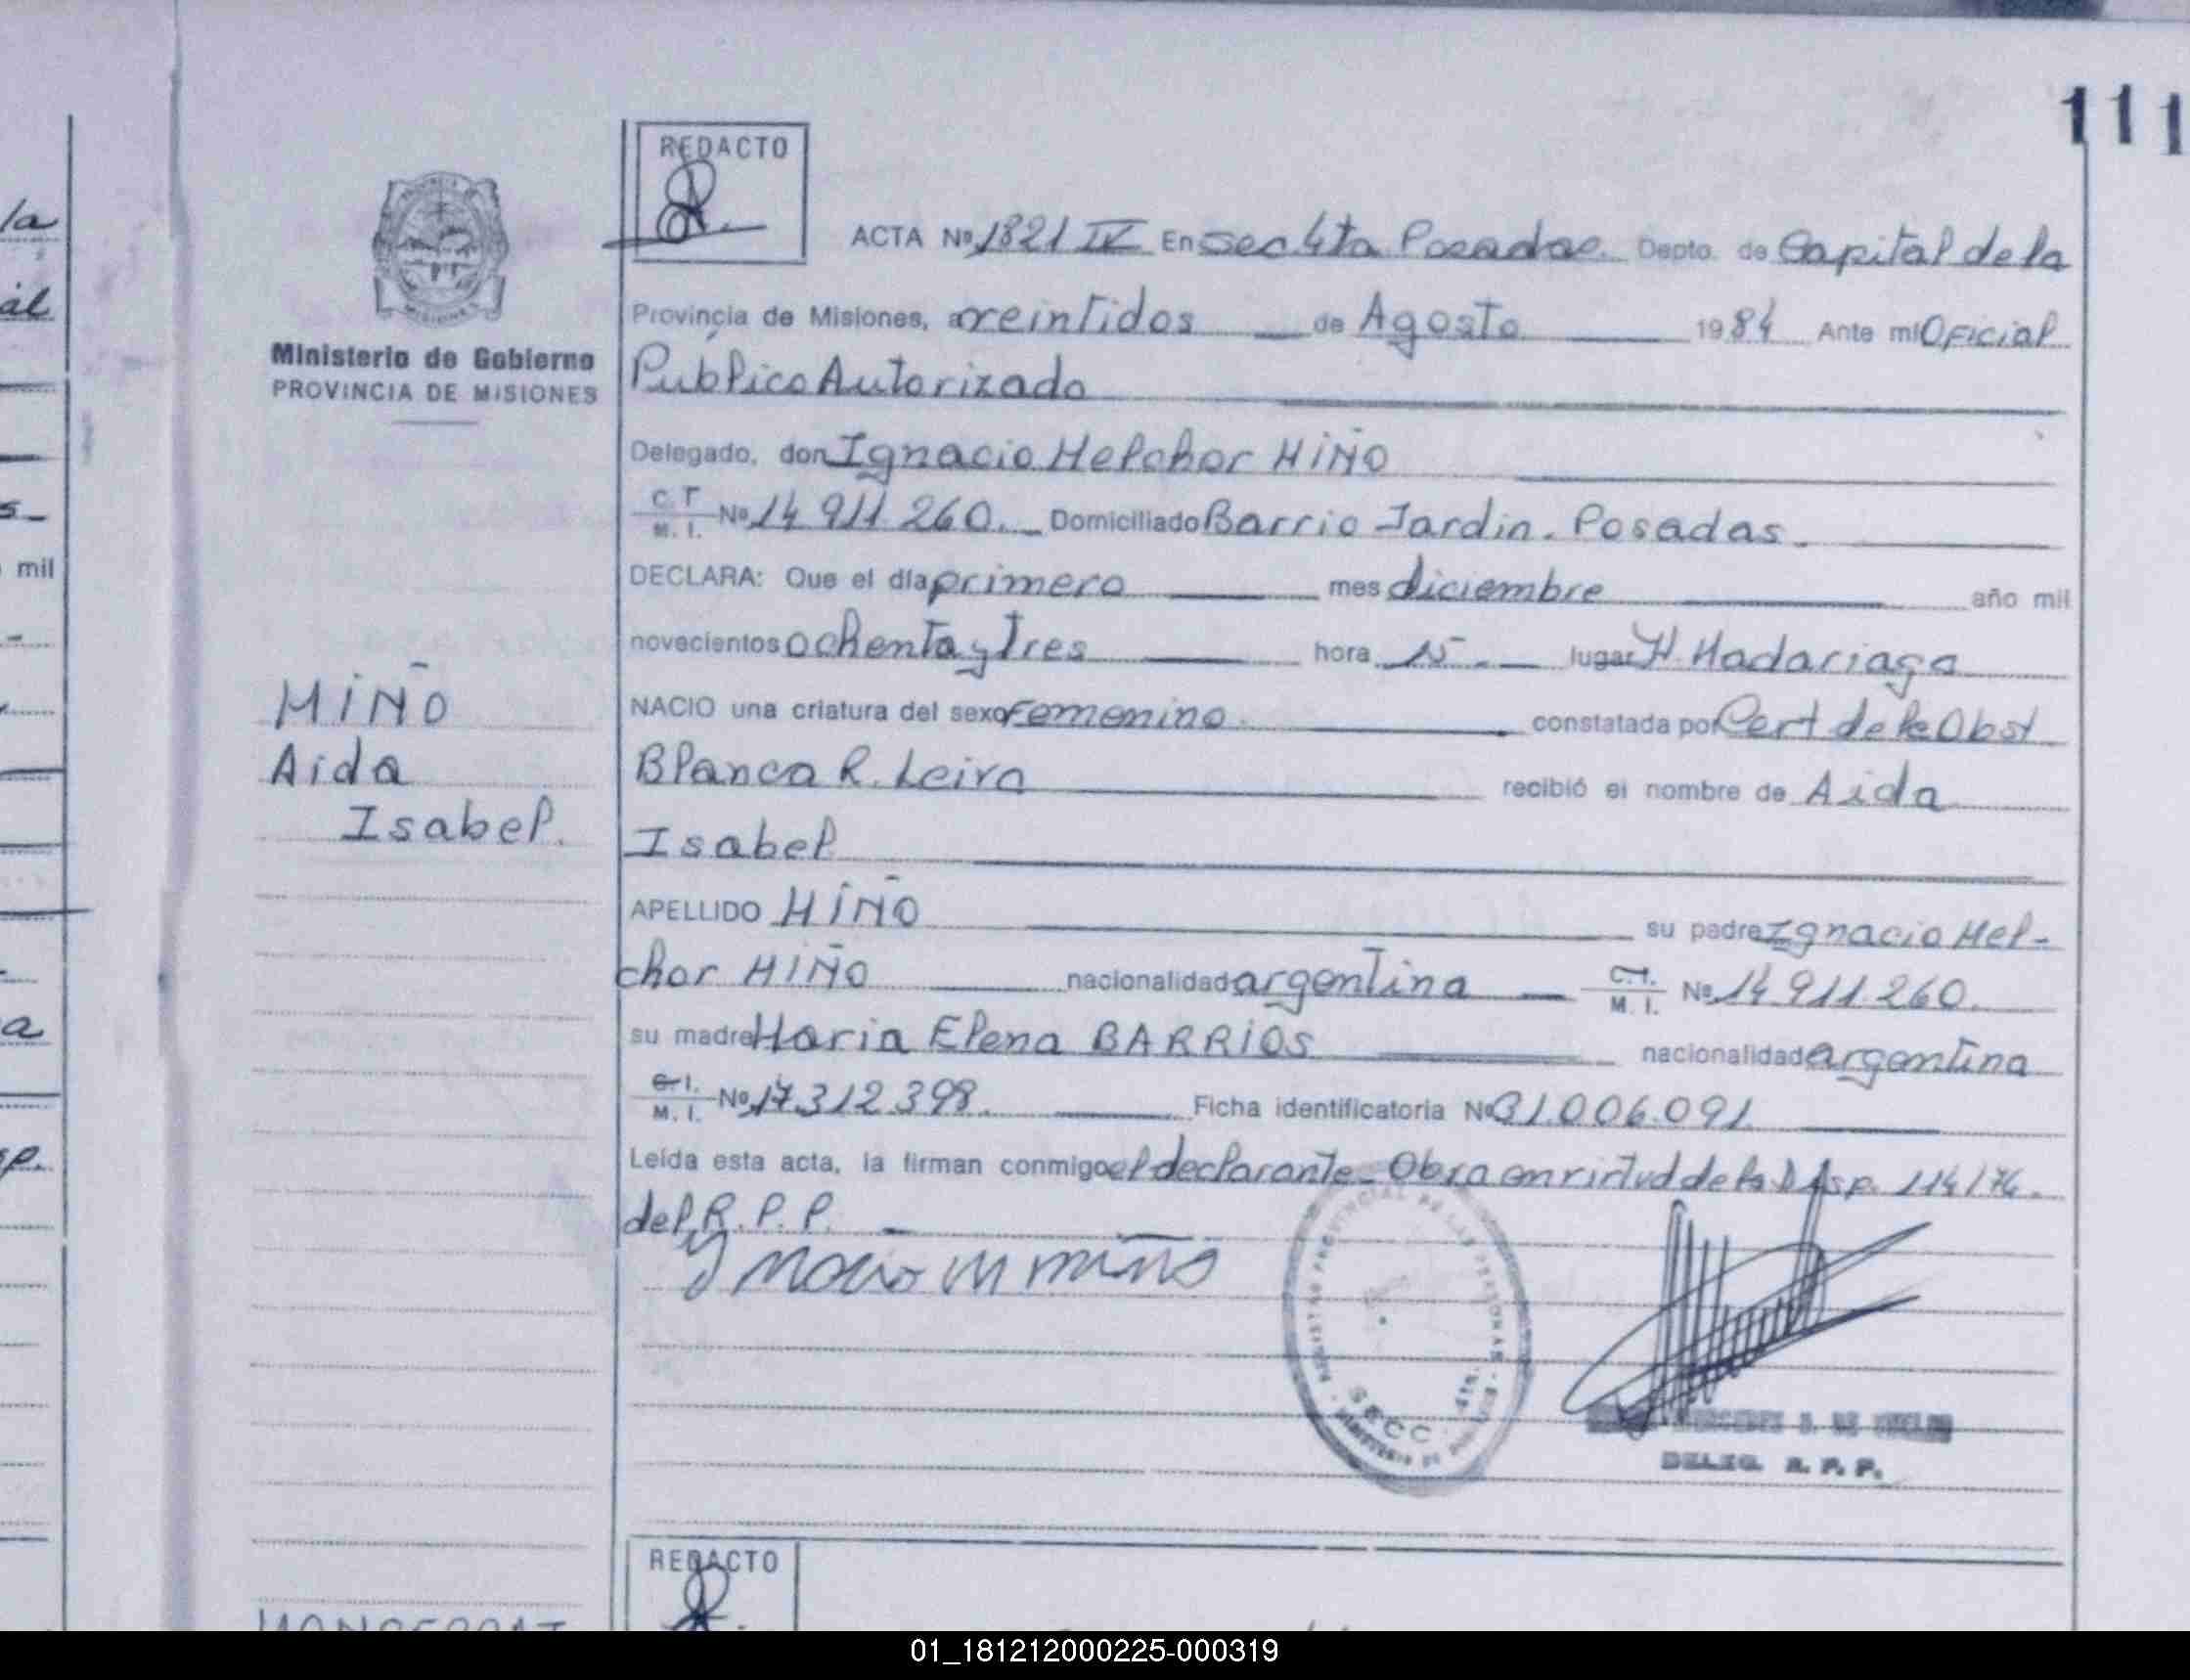 111
la
al
s
mil
a
sp.
REDACTO
Ministerio de Gobierno
PROVINCIA DE MISIONES
ACTA Nº 1821 IV En Sec 4ta Posadas. Depto. de Capital de la
Provincia de Misiones, a veintidos de Agosto 1984 Ante mi Oficial
Público Autorizado
Delegado, don Ignacio Melchor MIÑO
C. I. M. I. Nº 14 911.260. Domiciliado Barrio Jardin. Posadas.
DECLARA: Que el día primero mes diciembre año mil
novecientos ochenta y tres hora 15 lugar H. Madariaga
NACIO una criatura del sexo femenino. constatada por Cert de la Obst
Blanca R. Leiva recibió el nombre de Aida
Isabel
MIÑO
Aida
Isabel.
APELLIDO MIÑO su padre Ignacio Mel-
chor MIÑO nacionalidad argentina C.I. M. I. Nº 14 911.260.
su madre Maria Elena BARRIOS nacionalidad argentina
C.I. M. I. Nº 17.312.398. Ficha identificatoria Nº 31.006.091.
Leída esta acta, la firman conmigo el declarante - Obra en virtud de la Disp. 114/74.
del R. P. P.
Ignacio M Miño
REGISTRO PROVINCIAL DE LAS PERSONAS
SECC. 4ta.
MINISTERIO DE GOBIERNO
DELEG. R. P. P.
REDACTO
01_181212000225-000319